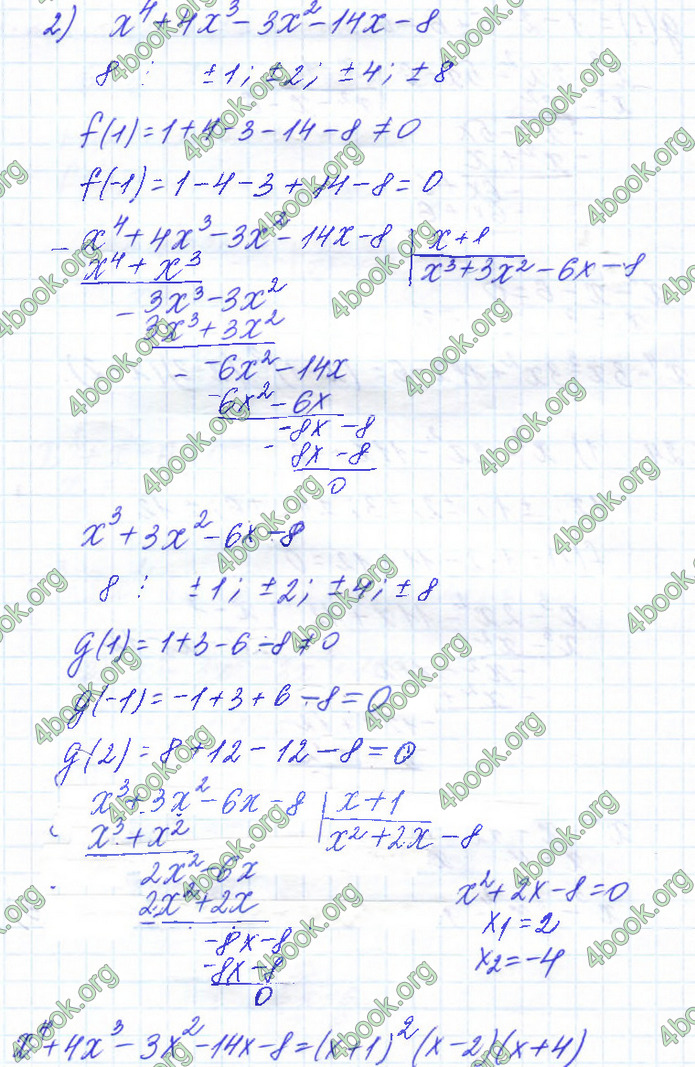 2) x⁴+4x³-3x²-14x-8
8 ⋮ ±1; ±2; ±4; ±8
f(1)=1+4-3-14-8≠0
f(-1)=1-4-3+14-8=0
- x⁴+4x³-3x²-14x-8 | x+1
x⁴+x³ | x³+3x²-6x-8
- 3x³-3x²
3x³+3x²
- -6x²-14x
-6x²-6x
-8x-8
- 8x-8
0
x³+3x²-6x-8
8 ⋮ ±1; ±2; ±4; ±8
g(1)=1+3-6-8≠0
g(-1)=-1+3+6-8=0
g(2)=8+12-12-8=0
x³+3x²-6x-8 | x+1
x³+x² | x²+2x-8
2x²-6x
2x²+2x
-8x-8
-8x-8
0
x²+2x-8=0
x₁=2
x₂=-4
x⁴+4x³-3x²-14x-8=(x+1)²(x-2)(x+4)
4book.org